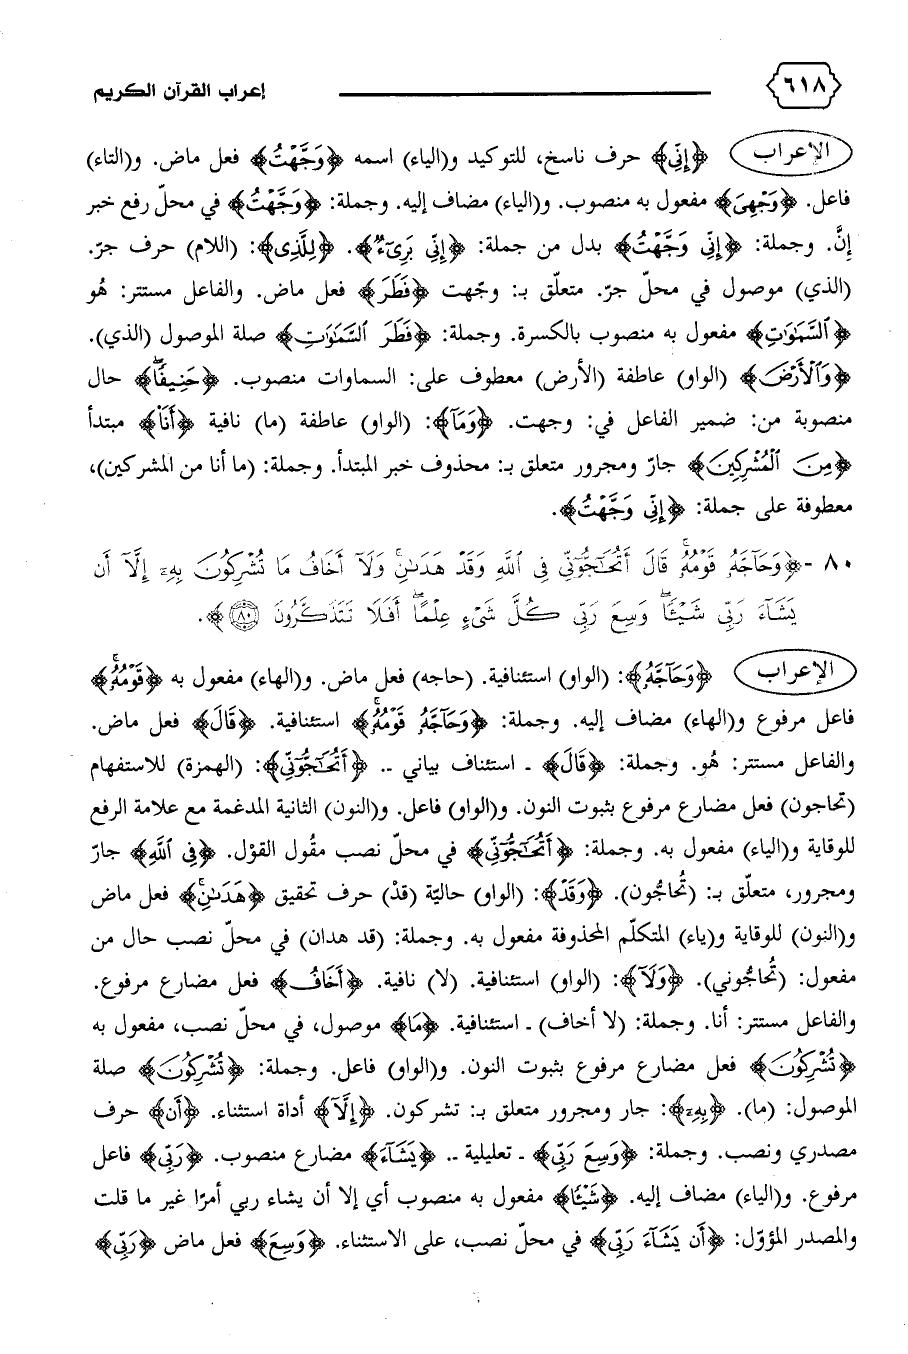 ٦١٨ إعراب القرآن الكريم
الإعراب ﴿إِنِّي﴾ حرف ناسخ، للتوكيد و(الياء) اسمه ﴿وَجَّهْتُ﴾ فعل ماض. و(التاء)
فاعل. ﴿وَجْهِىَ﴾ مفعول به منصوب. و(الياء) مضاف إليه. وجملة: ﴿وَجَّهْتُ﴾ في محلّ رفع خبر
إنَّ. وجملة: ﴿إِنِّي وَجَّهْتُ﴾ بدل من جملة: ﴿إِنِّي بَرِيٓءٌ﴾. ﴿لِلَّذِى﴾: (اللام) حرف جرّ.
(الذي) موصول في محلّ جرّ. متعلّق بـ: وجّهت ﴿فَطَرَ﴾ فعل ماض. والفاعل مستتر: هُو
﴿ٱلسَّمَٰوَٰتِ﴾ مفعول به منصوب بالكسرة. وجملة: ﴿فَطَرَ ٱلسَّمَٰوَٰتِ﴾ صلة الموصول (الذي).
﴿وَٱلْأَرْضَ﴾ (الواو) عاطفة (الأرض) معطوف على: السماوات منصوب. ﴿حَنِيفًاۖ﴾ حال
منصوبة من: ضمير الفاعل في: وجهت. ﴿وَمَآ﴾: (الواو) عاطفة (ما) نافية ﴿أَنَا۠﴾ مبتدأ
﴿مِنَ ٱلْمُشْرِكِينَ﴾ جارّ ومجرور متعلق بـ: محذوف خبر المبتدأ. وجملة: (ما أنا من المشركين)،
معطوفة على جملة: ﴿إِنِّي وَجَّهْتُ﴾.
٨٠ -﴿وَحَآجَّهُۥ قَوْمُهُۥۚ قَالَ أَتُحَٰٓجُّوٓنِّي فِى ٱللَّهِ وَقَدْ هَدَىٰنِۚ وَلَآ أَخَافُ مَا تُشْرِكُونَ بِهِۦٓ إِلَّآ أَن
يَشَآءَ رَبِّي شَيْـًٔاۗ وَسِعَ رَبِّي كُلَّ شَىْءٍ عِلْمًاۗ أَفَلَا تَتَذَكَّرُونَ ٨٠﴾.
الإعراب ﴿وَحَآجَّهُۥ﴾: (الواو) استئنافية. (حاجه) فعل ماض. و(الهاء) مفعول به ﴿قَوْمُهُۥۚ﴾
فاعل مرفوع و(الهاء) مضاف إليه. وجملة: ﴿وَحَآجَّهُۥ قَوْمُهُۥۚ﴾ استئنافية. ﴿قَالَ﴾ فعل ماض.
والفاعل مستتر: هُو. وجملة: ﴿قَالَ﴾ ـ استئناف بياني .. ﴿أَتُحَٰٓجُّوٓنِّي﴾: (الهمزة) للاستفهام
(تحاجون) فعل مضارع مرفوع بثبوت النون. و(الواو) فاعل. و(النون) الثانية المدغمة مع علامة الرفع
للوقاية و(الياء) مفعول به. وجملة: ﴿أَتُحَٰٓجُّوٓنِّي﴾ في محلّ نصب مقُول القوْل. ﴿فِى ٱللَّهِ﴾ جارّ
ومجرور، متعلّق بـ: (تُحاجُون). ﴿وَقَدْ﴾: (الواو) حاليّة (قدْ) حرف تحقيق ﴿هَدَىٰنِۚ﴾ فعل ماض
و(النون) للوقاية و(ياء) المتكلّم المحذوفة مفعول به. وجملة: (قد هدان) في محلّ نصب حال من
مفعول: (تُحاجُوني). ﴿وَلَآ﴾: (الواو) استئنافية. (لا) نافية. ﴿أَخَافُ﴾ فعل مضارع مرفوع.
والفاعل مستتر: أنا. وجملة: (لا أخاف) ـ استئنافية. ﴿مَا﴾ موصول، في محلّ نصب، مفعول به
﴿تُشْرِكُونَ﴾ فعل مضارع مرفوع بثبوت النون. و(الواو) فاعل. وجملة: ﴿تُشْرِكُونَ﴾ صلة
الموصول: (ما). ﴿بِهِۦٓ﴾: جار ومجرور متعلق بـ: تشركون. ﴿إِلَّآ﴾ أداة استثناء. ﴿أَن﴾ حرف
مصدري ونصب. وجملة: ﴿وَسِعَ رَبِّي﴾ ـ تعليلية .. ﴿يَشَآءَ﴾ مضارع منصوب. ﴿رَبِّي﴾ فاعل
مرفوع. و(الياء) مضاف إليه. ﴿شَيْـًٔا﴾ مفعول به منصوب أي إلا أن يشاء ربي أمرًا غير ما قلت
والمصدر المؤوّل: ﴿أَن يَشَآءَ رَبِّي﴾ في محلّ نصب، على الاستثناء. ﴿وَسِعَ﴾ فعل ماض ﴿رَبِّي﴾